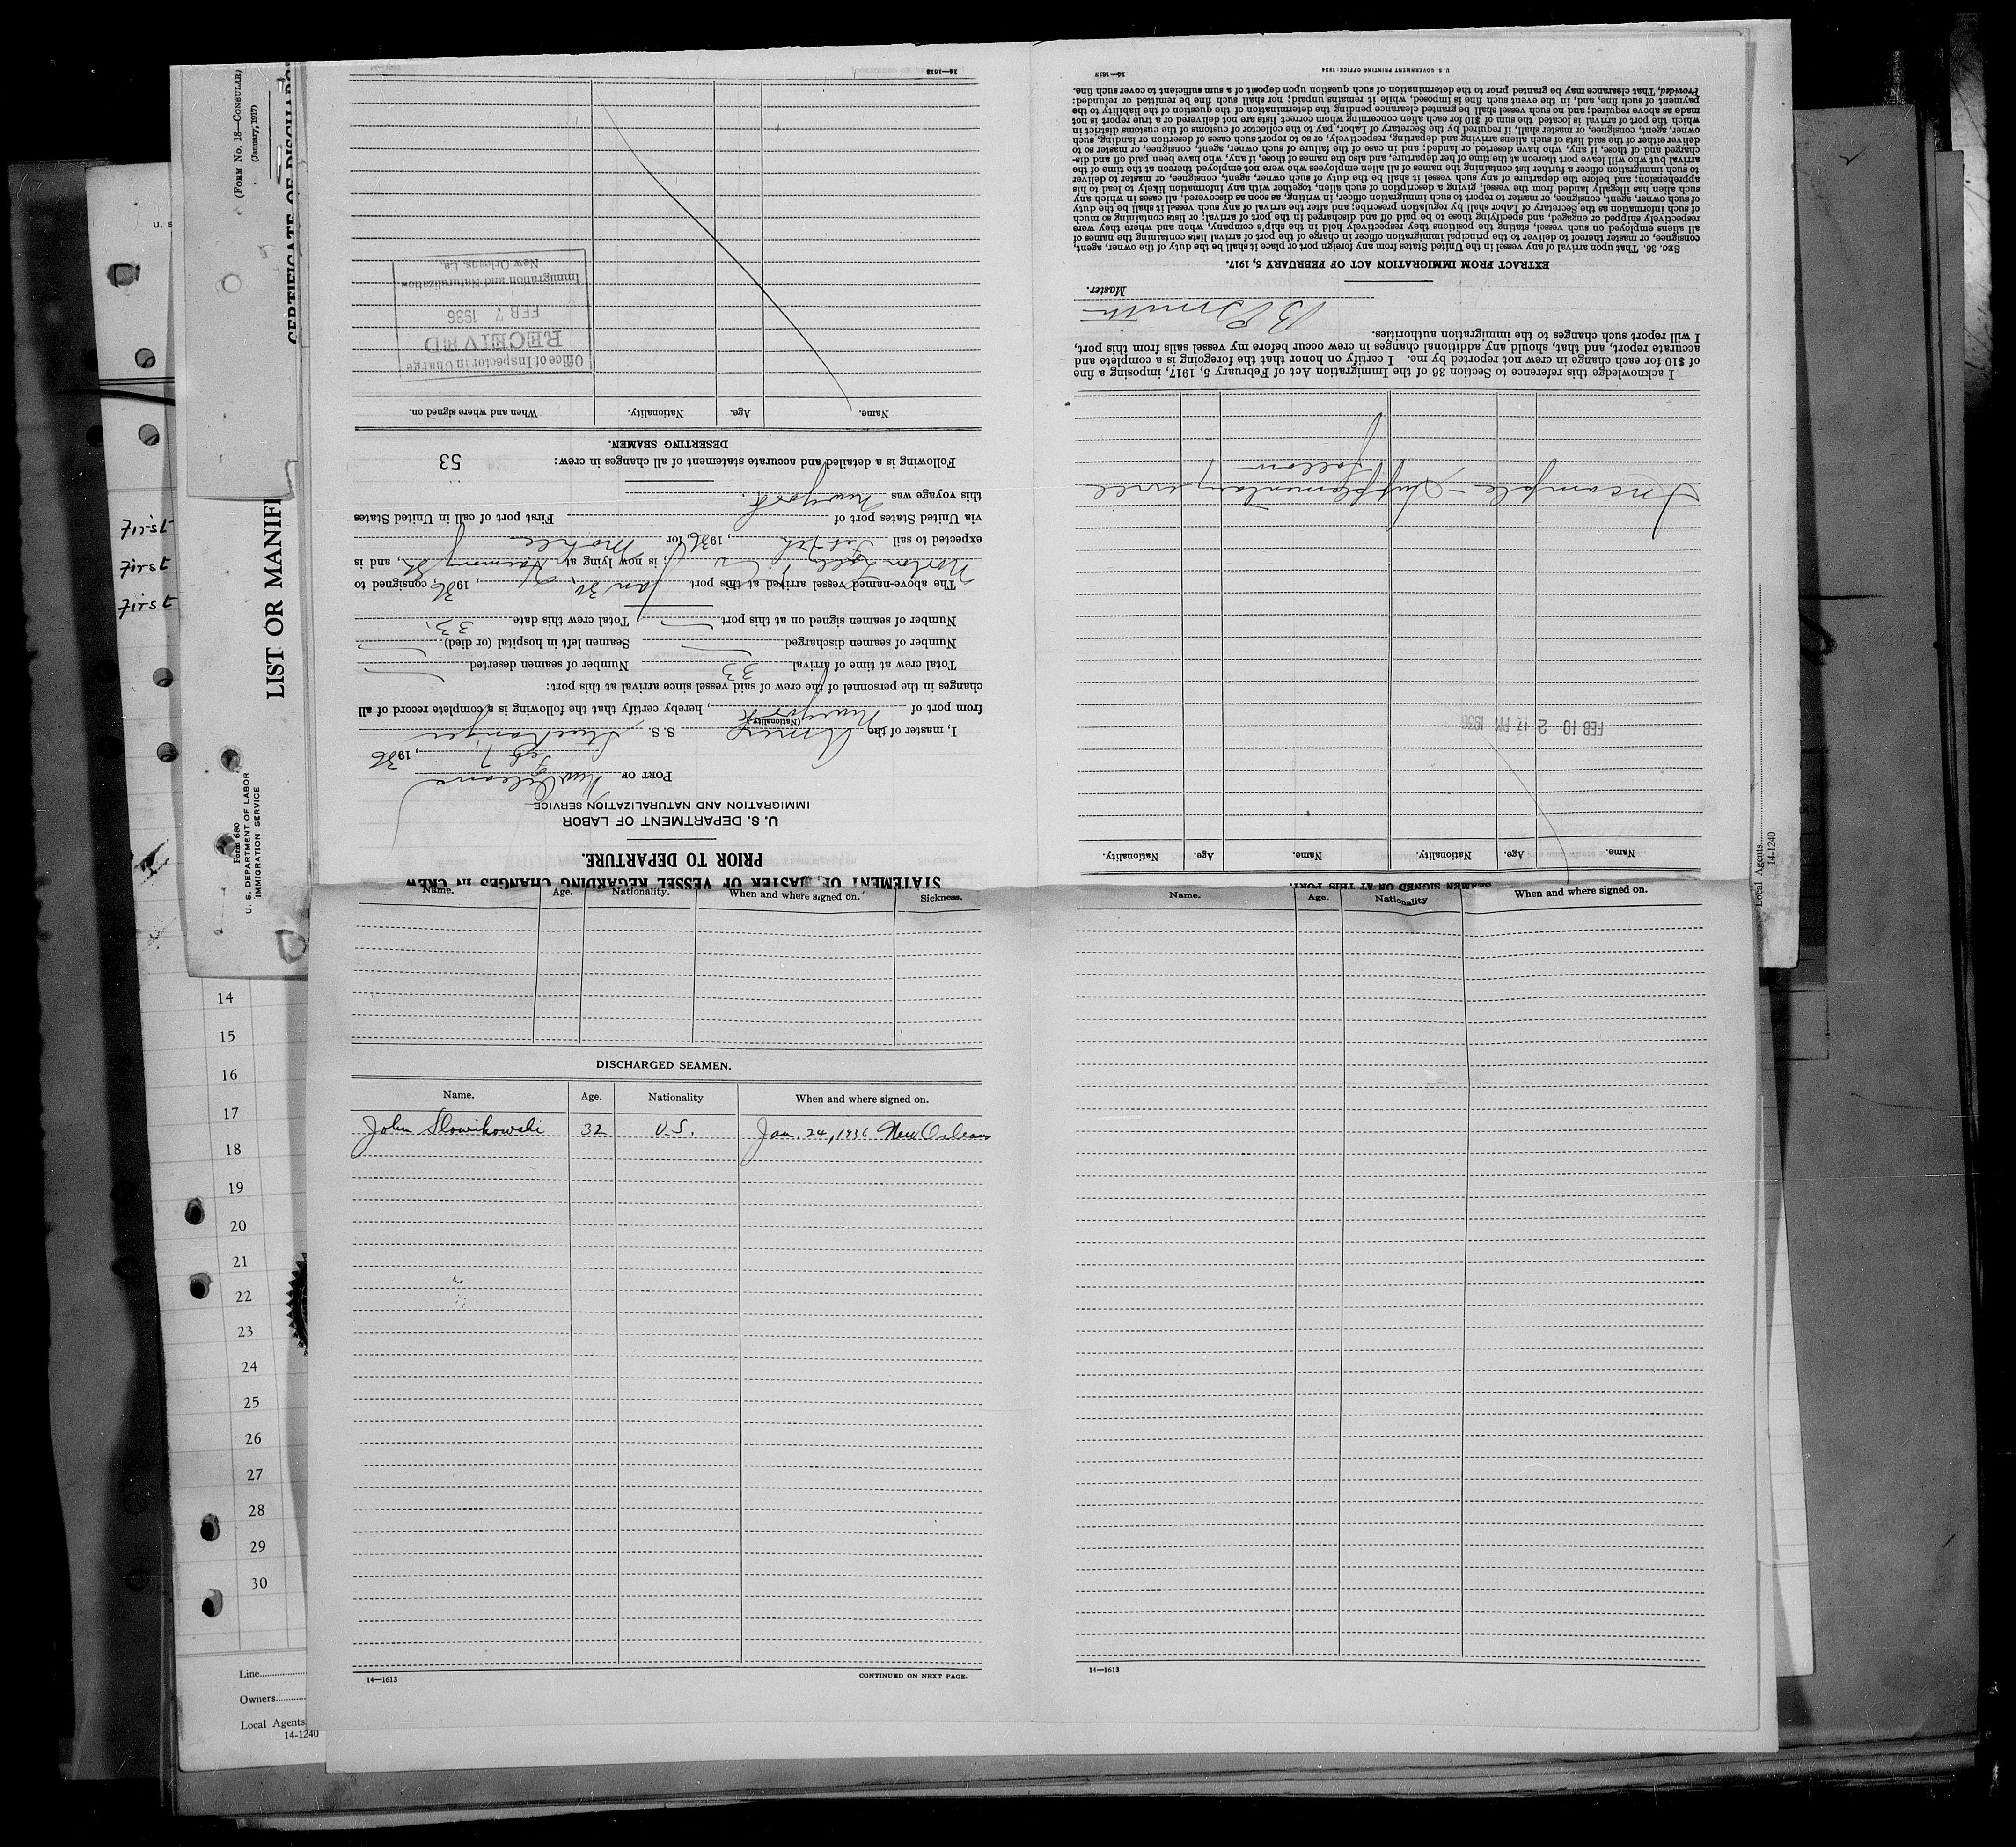 STATEMENT OF MASTER OF VESSEL REGARDING CHANGES IN CREW
PRIOR TO DEPARTURE.
U. S. DEPARTMENT OF LABOR
IMMIGRATION AND NATURALIZATION SERVICE
PORT OF New Orleans
Feb 7, 1936
I, master of the Amer (Nationality) S. S.
from port of New York, hereby certify that the following is a complete record of all
changes in the personnel of the crew of said vessel since arrival at this port:
Total crew at time of arrival 33 Number of seamen deserted
Number of seamen discharged Seamen left in hospital (or died)
Number of seamen signed on at this port Total crew this date 33
The above-named vessel arrived at this port Jan 31, 1936, consigned to
Norton Lilly ; is now lying at Harmony St, and is
expected to sail Feb 7th, 1936, for Mobile
via United States port of First port of call in United States
this voyage was New York.
Following is a detailed and accurate statement of all changes in crew: 53
DESERTING SEAMEN.
Name. Age. Nationality. When and where signed on.
Office of Inspector in Charge
RECEIVED
FEB 7 1936
Immigration and Naturalization
New Orleans, La.
14—1613
SEAMEN SIGNED ON AT THIS PORT.
Name. Age. Nationality. Name. Age. Nationality.
FEB 10 2 17 PM 1936
Incomplete - Supplementary will
follow
I acknowledge this reference to Section 36 of the Immigration Act of February 5, 1917, imposing a fine
of $10 for each change in crew not reported by me. I certify on honor that the foregoing is a complete and
accurate report, and that, should any additional changes in crew occur before my vessel sails from this port,
I will report such changes to the immigration authorities.
Master.
EXTRACT FROM IMMIGRATION ACT OF FEBRUARY 5, 1917.
SEC. 36. That upon arrival of any vessel in the United States from any foreign port or place it shall be the duty of the owner, agent,
consignee, or master thereof to deliver to the principal immigration officer in charge of the port of arrival lists containing the names of
all aliens employed on such vessel, stating the positions they respectively hold in the ship's company, when and where they were
respectively shipped or engaged, and specifying those to be paid off and discharged in the port of arrival; or lists containing so much
of such information as the Secretary of Labor shall by regulation prescribe; and after the arrival of any such vessel it shall be the duty
of such owner, agent, consignee, or master to report to such immigration officer, in writing, as soon as discovered, all cases in which any
such alien has illegally landed from the vessel, giving a description of such alien, together with any information likely to lead to his
apprehension; and before the departure of any such vessel it shall be the duty of such owner, agent, consignee, or master to deliver
to such immigration officer a further list containing the names of all alien employees who were not employed thereon at the time of the
arrival but who will leave port thereon at the time of her departure, and also the names of those, if any, who have been paid off and dis-
charged and of those, if any, who have deserted or landed; and in case of the failure of such owner, agent, consignee, or master so to
deliver either of the said lists of such aliens arriving and departing, respectively, or so to report such cases of desertion or landing, such
owner, agent, consignee, or master shall, if required by the Secretary of Labor, pay to the collector of customs of the customs district in
which the port of arrival is located the sum of $10 for each alien concerning whom correct lists are not delivered or a true report is not
made as above required; and no such vessel shall be granted clearance pending the determination of the question of the liability to the
payment of such fine, and, in the event such fine is imposed, while it remains unpaid; nor shall such fine be remitted or refunded:
Provided, That clearance may be granted prior to the determination of such question upon deposit of a sum sufficient to cover such fine.
U. S. GOVERNMENT PRINTING OFFICE: 1934 14—1613
Name. Age. Nationality. When and where signed on. Sickness.
DISCHARGED SEAMEN.
Name. Age. Nationality When and where signed on.
John Slowikowski 32 U.S. Jan. 24, 1936 New Orleans
14—1613 CONTINUED ON NEXT PAGE.
Name. Age. Nationality When and where signed on.
14—1613
(FORM No. 18—CONSULAR)
(January, 1917)
CERTIFICATE OF DISCHARGE
LIST OR MANIFE
Form 680
U. S. DEPARTMENT OF LABOR
IMMIGRATION SERVICE
U. S
First
First
First
14
15
16
17
18
19
20
21
22
23
24
25
26
27
28
29
30
Line
Owners
Local Agents
14-1240
Local Agents
14-1240